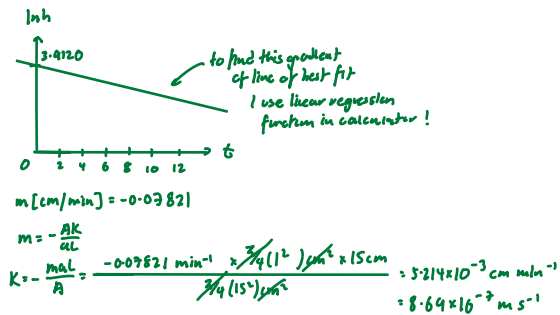 lnh
3.9120
to find this gradient
of line of best fit
I use linear regression
function in calculator !
0 2 4 6 8 10 12 t
m [cm/min] = -0.07821
m = - AK/aL
K = - maL/A = (-0.07821 min⁻¹ × π/4 (1²) cm² × 15cm) / (π/4 (15²) cm²) = 5.214×10⁻³ cm min⁻¹
= 8.69×10⁻⁷ m s⁻¹